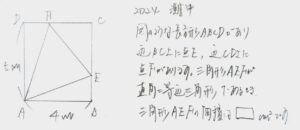 2024 灘中
図のような長方形ABCDがあり
辺BC上に点E、辺CD上に
点Fがあります。三角形AEFが
直角二等辺三角形であるとき
三角形AEFの面積は□cm²です
D
F
C
E
A
4cm
B